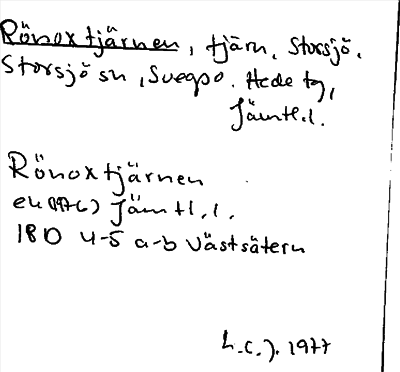 Rönoxtjärnen, tjärn, Storsjö,
Storsjö sn, Svegs po. Hede tg,
Jämtl.l.
Rönoxtjärnen
ek (1976) Jämtl.l.
18D 4-5 a-b Västsätern
L.C.J. 1977